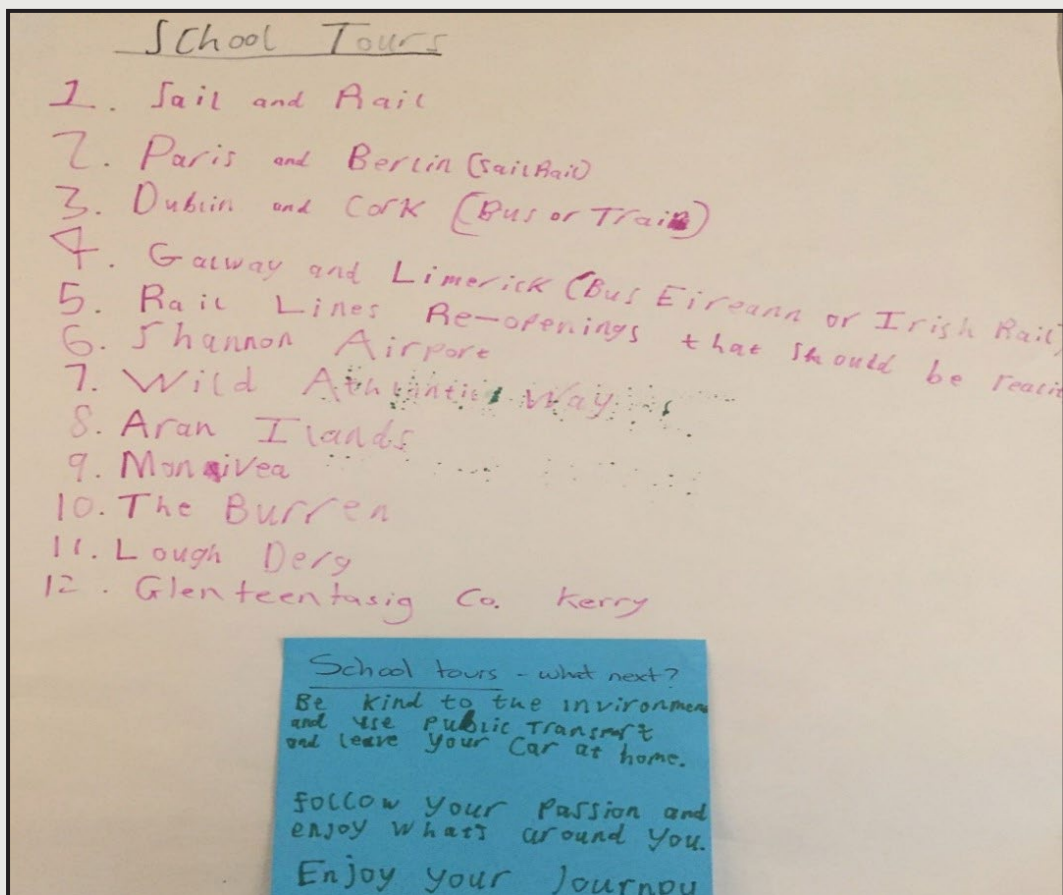 School Tours
1. Sail and Rail
2. Paris and Berlin (SailRail)
3. Dublin and Cork (Bus or Train)
4. Galway and Limerick (Bus Eireann or Irish Rail)
5. Rail Lines Re-openings that should be
6. Shannon Airport
7. Wild Athlantic Way
8. Aran Ilands
9. Monivea
10. The Burren
11. Lough Derg
12. Glenteentasig Co. Kerry
School tours - what next?
Be kind to the invironmen
and use Public Transport
and leave your Car at home.
Follow your Passion and
enjoy what's around you.
Enjoy your Journey